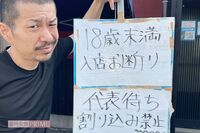 18歳末満
入店お断り
代表待ち
割り込み禁止